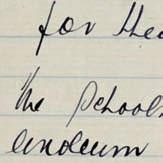 for the
the School
linoleum